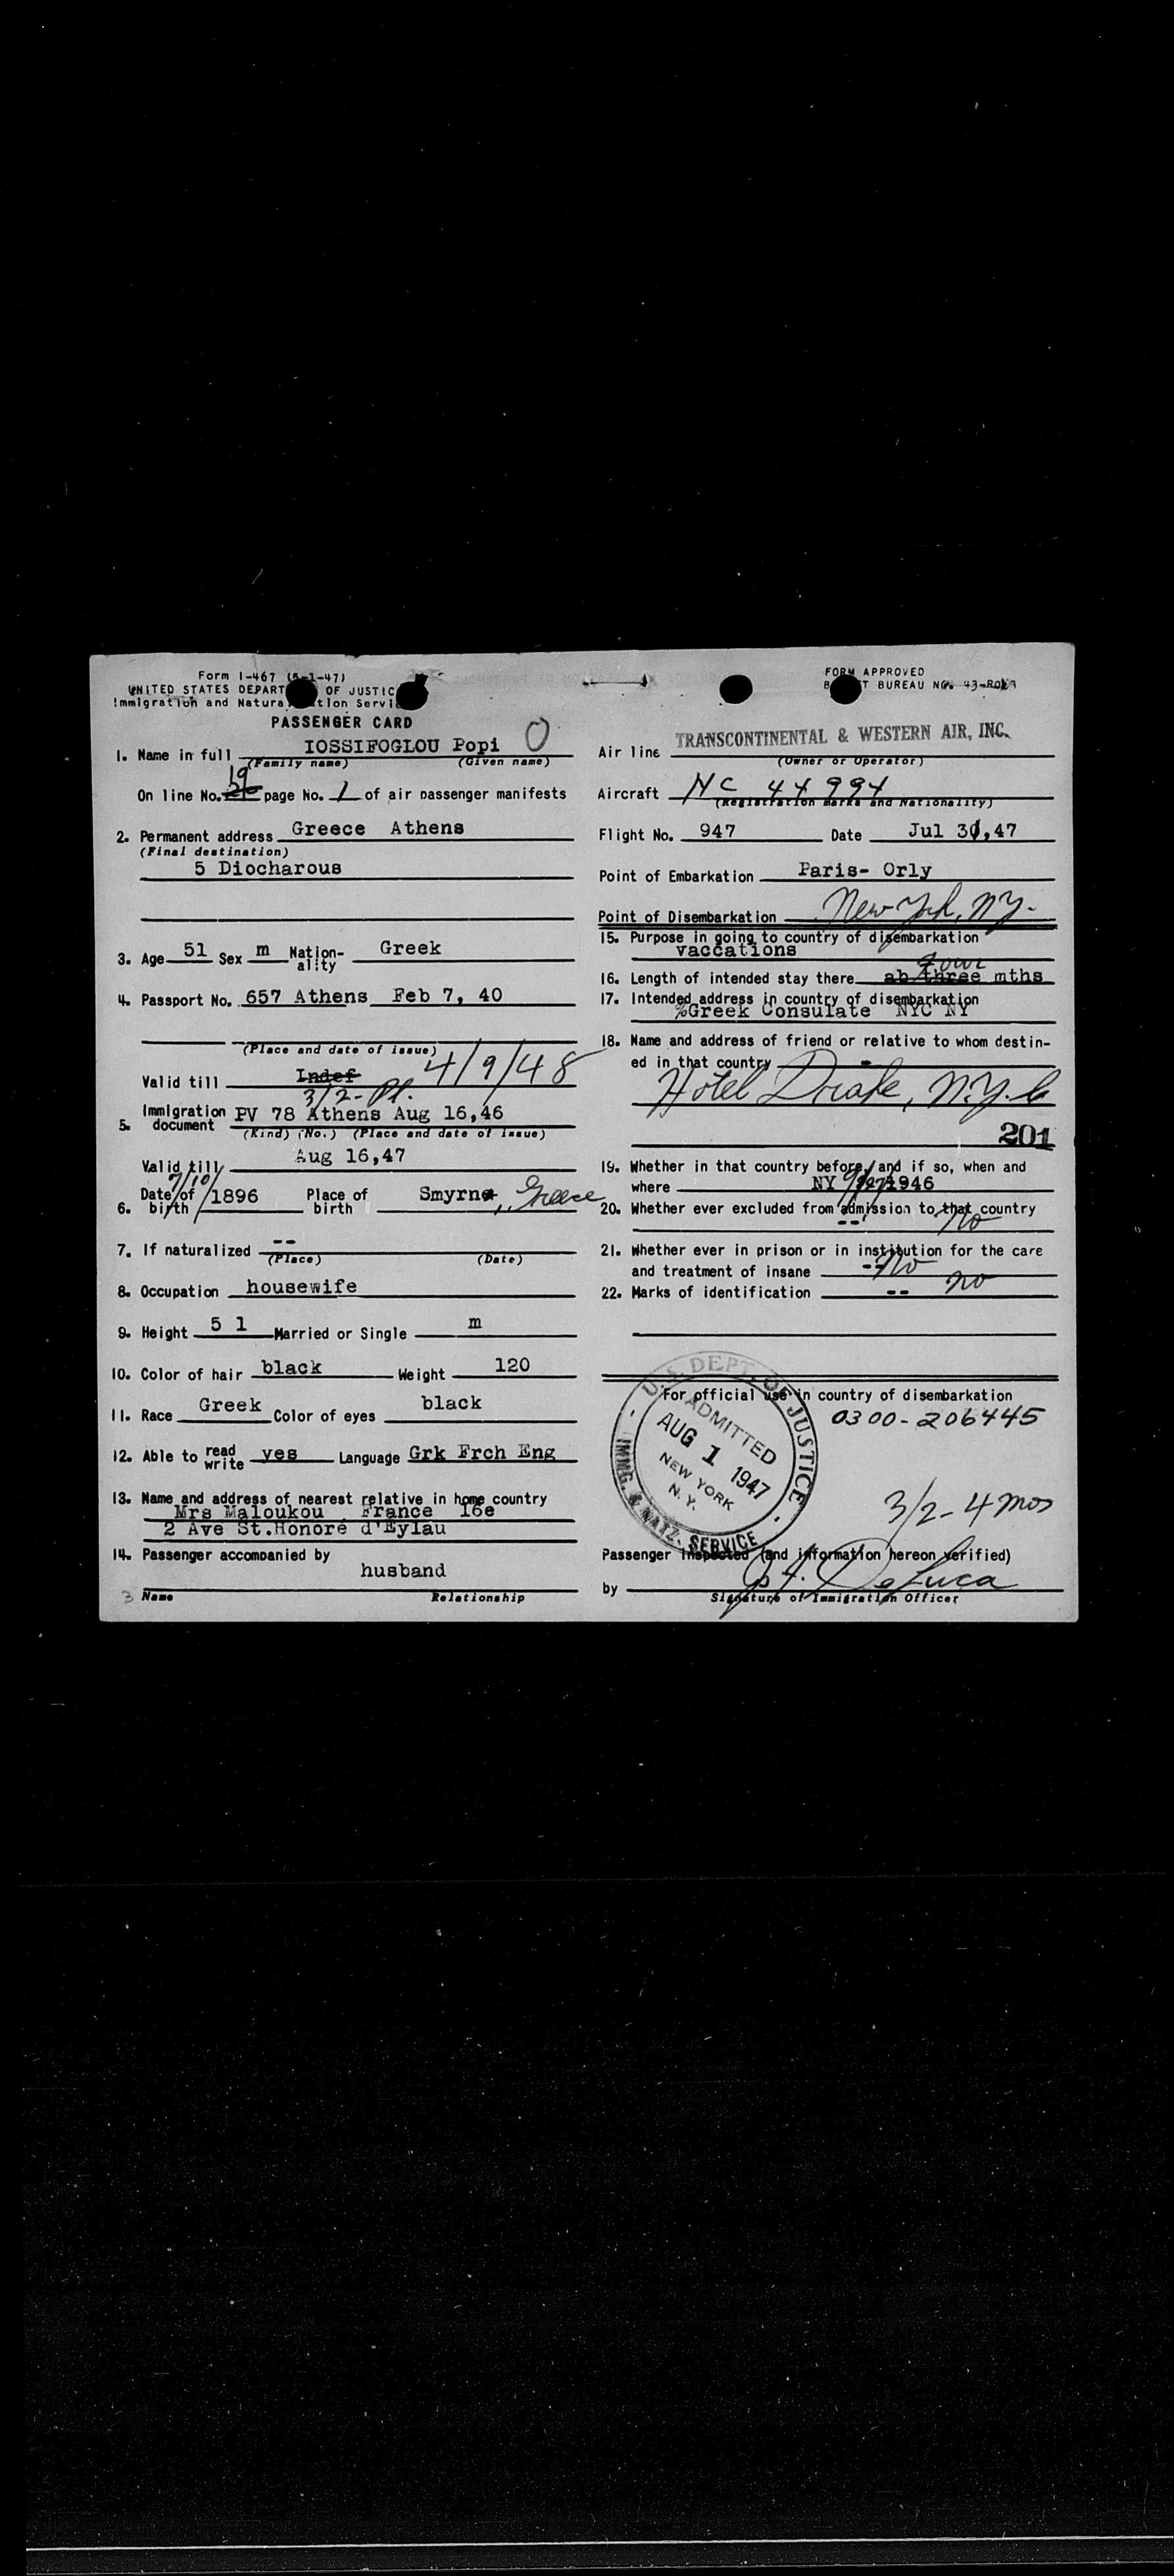 Form I-467 (5-1-47)
UNITED STATES DEPART OF JUSTIC
Immigration and Natura tion Servi
PASSENGER CARD
1. Name in full IOSSIFOGLOU Popi O
(Family name) (Given name)
On line No. 19 page No. 1 of air passenger manifests
2. Permanent address Greece Athens
(Final destination)
5 Diocharous
3. Age 51 Sex m Nation-ality Greek
4. Passport No. 657 Athens Feb 7, 40
(Place and date of issue)
Valid till Indef 4/9/48
3/2-Pl.
5. Immigration document PV 78 Athens Aug 16,46
(Kind) (No.) (Place and date of issue)
Valid till Aug 16,47
6. Date of birth 7/10/1896 Place of birth Smyrna, Greece
7. If naturalized --
(Place) (Date)
8. Occupation housewife
9. Height 5 1 Married or Single m
10. Color of hair black Weight 120
11. Race Greek Color of eyes black
12. Able to read write yes Language Grk Frch Eng
13. Name and address of nearest relative in home country
Mrs Maloukou France 16e
2 Ave St.Honoré d'Eylau
14. Passenger accompanied by
husband
3 Name Relationship
FORM APPROVED
B T BUREAU NO. 43-R043
Air line TRANSCONTINENTAL & WESTERN AIR, INC.
(Owner or Operator)
Aircraft NC 44994
(Registration marks and Nationality)
Flight No. 947 Date Jul 31,47
Point of Embarkation Paris- Orly
Point of Disembarkation New York, NY.
15. Purpose in going to country of disembarkation
vaccations
16. Length of intended stay there ab three four mths
17. Intended address in country of disembarkation
%Greek Consulate NYC NY
18. Name and address of friend or relative to whom destin-
ed in that country -
Hotel Drake, N.Y.C
201
19. Whether in that country before, and if so, when and
where NY 1946
20. Whether ever excluded from admission to that country
-- no
21. Whether ever in prison or in institution for the care
and treatment of insane -- no
22. Marks of identification -- no
For official use in country of disembarkation
0300-206445
U.S. DEPT. OF JUSTICE
ADMITTED
AUG 1 1947
NEW YORK
N.Y.
IMMG. & NATZ. SERVICE
3/2-4 mos
Passenger inspected (and information hereon verified)
by DeLuca
Signature of Immigration Officer